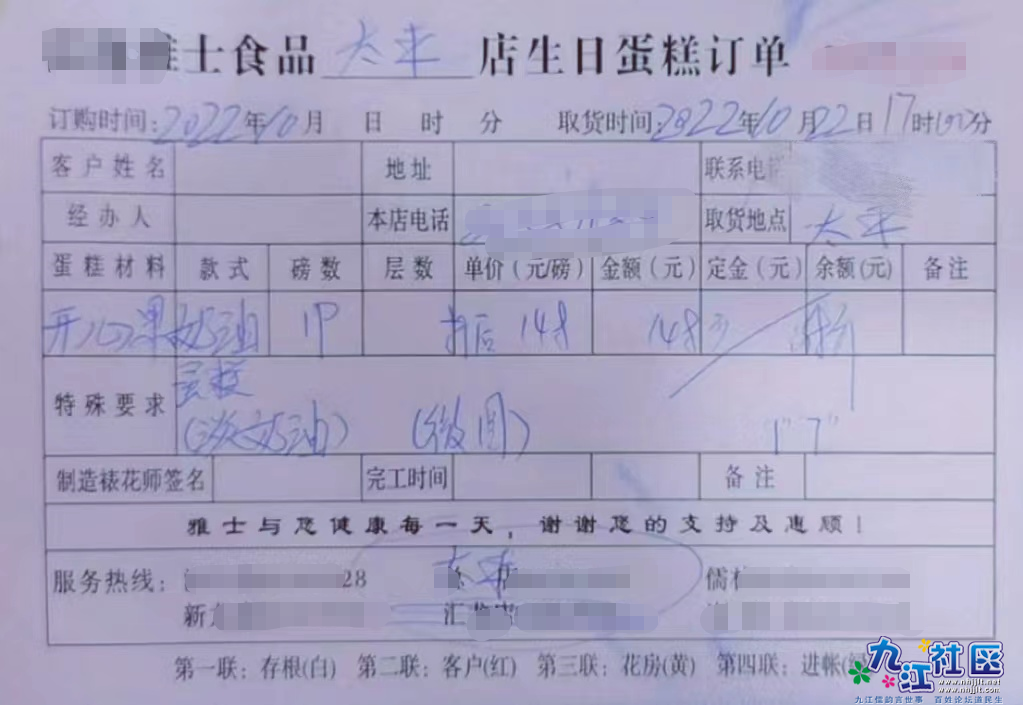 雅士食品 太平 店生日蛋糕订单
订购时间:2022年10月 日 时 分 取货时间:2022年10月22日17时 分
客户姓名 地址 联系电
经办人 本店电话 取货地点 太平
蛋糕材料 款式 磅数 层数 单价(元/磅) 金额(元) 定金(元) 余额(元) 备注
开心果 奶油 1P 折后 148 148
特殊要求 蛋糕
(淡奶油) (微图) 1" 7"
制造裱花师签名 完工时间 备注
雅士与您健康每一天,谢谢您的支持及惠顾!
服务热线: 28 太平 儒
新 汇
第一联:存根(白) 第二联:客户(红) 第三联:花房(黄) 第四联:进帐(绿
九江社区
www.nhjlt.net
www.nhjlt.com
九江儒韵言世事 百姓论坛道民生